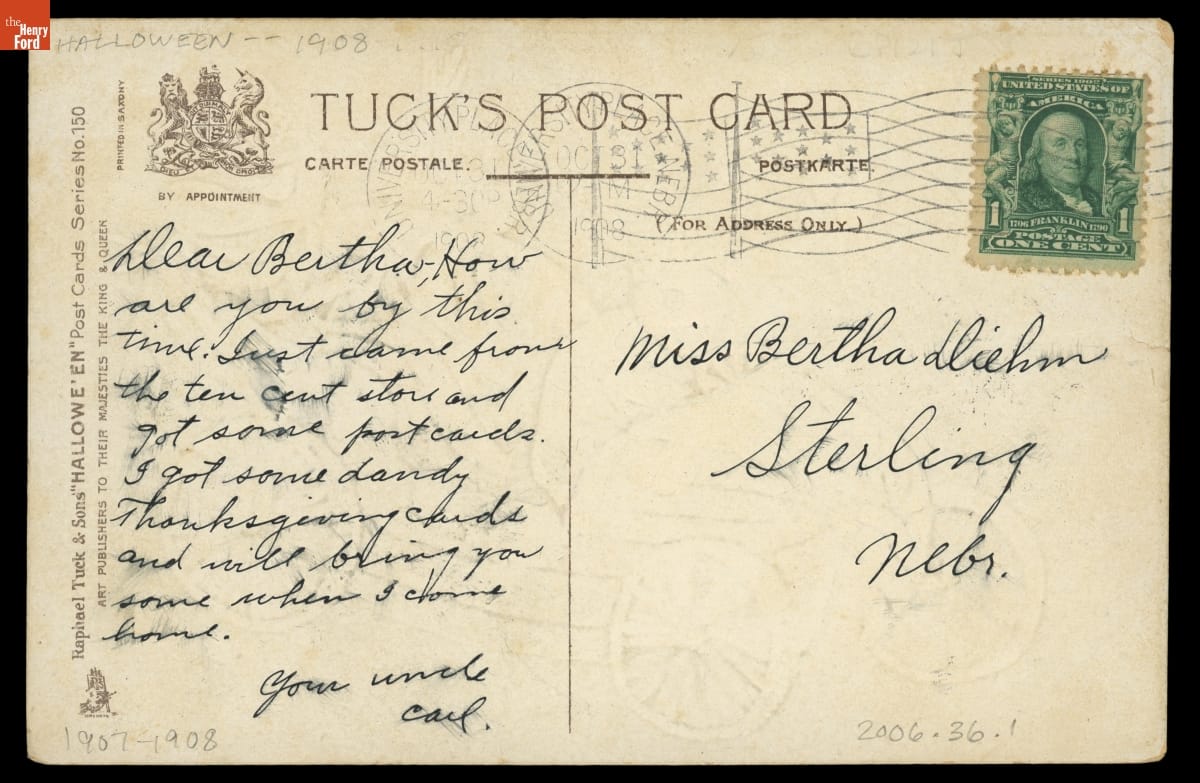 the
Henry
Ford
HALLOWEEN -- 1908
TUCK'S POST CARD
CARTE POSTALE.
POSTKARTE.
(FOR ADDRESS ONLY.)
BY APPOINTMENT
PRINTED IN SAXONY
Raphael Tuck & Sons "HALLOWE'EN" Post Cards Series No. 150
ART PUBLISHERS TO THEIR MAJESTIES THE KING & QUEEN
UNIVERSITY PLACE
4-30P
1908
UNIVERSITY PLACE, NEBR.
OCT 31
1908
SERIES 1902
UNITED STATES OF
AMERICA
1 1
1706 FRANKLIN 1790
POSTAGE
ONE CENT
Dear Bertha, How
are you by this
time. Just came from
the ten cent store and
got some post cards.
I got some dandy
Thanksgiving cards
and will bring you
some when I come
home.
Your uncle
Carl.
Miss Bertha Diehm
Sterling
Nebr.
1907-1908
2006.36.1